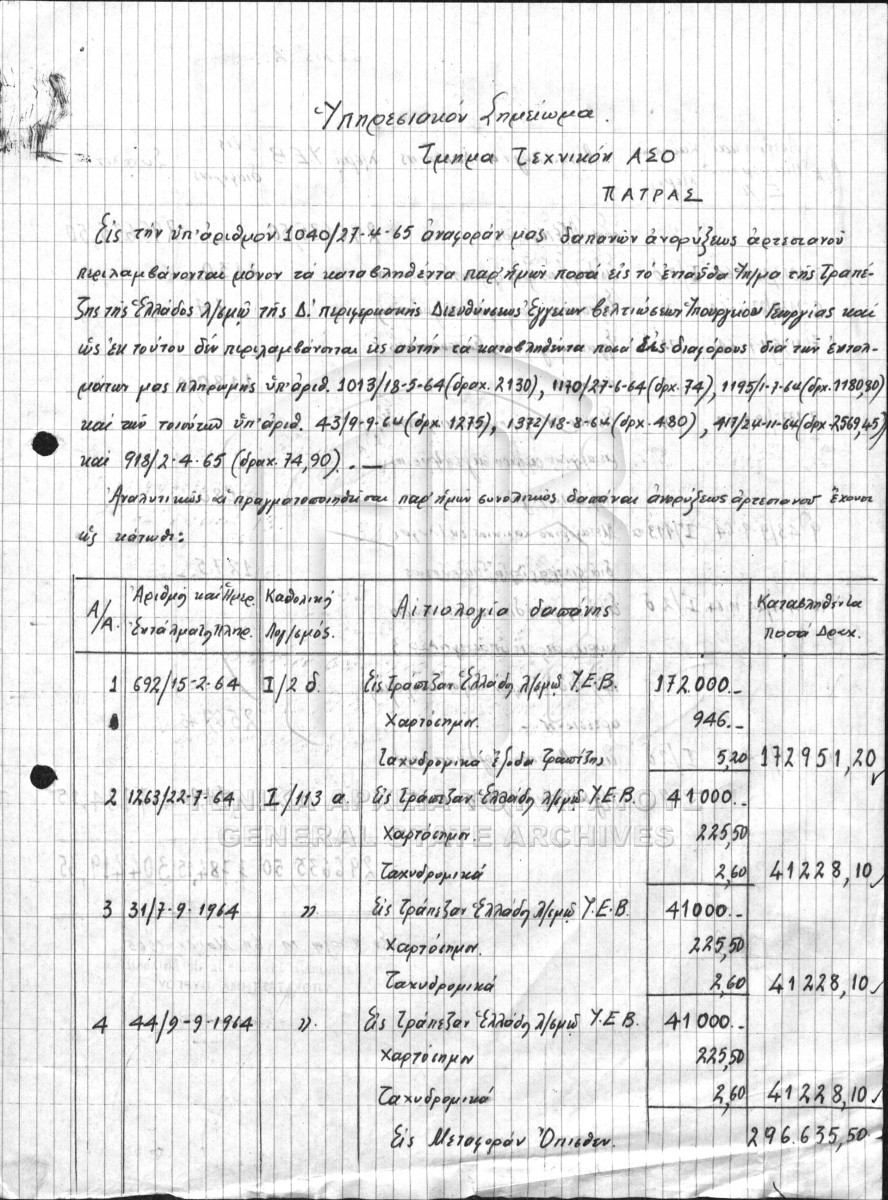 Ὑπηρεσιακόν Σημείωμα.
Τμῆμα Τεχνικόν ΑΣΟ
ΠΑΤΡΑΣ
Εἰς τήν ὑπ' ἀριθμόν 1040/27-4-65 ἀναφοράν μας δαπανῶν ἀνορύξεως ἀρτεσιανοῦ
περιλαμβάνονται μόνον τά καταβληθέντα παρ' ἡμῶν ποσά εἰς τό ἐνταῦθα Ὑπ/μα τῆς Τραπέ-
ζης τῆς Ἑλλάδος λ/σμῷ τῆς Δ. περιφερειακῆς Διευθύνσεως Ἐγγείων Βελτιώσεων Ὑπουργείου Γεωργίας καί
ὡς ἐκ τούτου δέν περιλαμβάνονται εἰς αὐτήν τά καταβληθέντα ποσά εἰς διαφόρους διά τῶν ἐνταλ-
μάτων μας πληρωμῆς ὑπ' ἀριθ. 1013/18-5-64 (δραχ. 2130), 1170/27-6-64 (δρχ. 74), 1195/1-7-64 (δρχ. 1180,80)
καί τῶν τοιούτων ὑπ' ἀριθ. 43/9-9-64 (δρχ. 1275), 1372/18-8-64 (δρχ. 480), 417/24-11-64 (δρχ. 2569,45)
καί 918/2-4-65 (δραχ. 74,90). —
Ἀναλυτικῶς αἱ πραγματοποιηθεῖσαι παρ' ἡμῶν συνολικῶς δαπάναι ἀνορύξεως ἀρτεσιανοῦ ἔχουσι
ὡς κάτωθι:
Α/Α. Ἀριθμός καί Ἡμερ. Ἐντάλματος Πληρ. Καθολική Λογ/σμός. Αἰτιολογία δαπάνης Καταβληθέντα Ποσά Δραχ.
1 692/15-2-64 Ι/2 δ. Εἰς Τράπεζαν Ἑλλάδος λ/σμῷ Υ.Ε.Β. 172.000.-
Χαρτόσημον. 946.-
Ταχυδρομικά ἔξοδα Τραπέζης 5,20 172951,20
2 1263/22-7-64 Ι/113 α. Εἰς Τράπεζαν Ἑλλάδος λ/σμῷ Υ.Ε.Β. 41000.-
Χαρτόσημον. 225,50
Ταχυδρομικά 2,60 41228,10
3 31/7-9-1964 〃 Εἰς Τράπεζαν Ἑλλάδος λ/σμῷ Υ.Ε.Β. 41000.-
Χαρτόσημον. 225,50
Ταχυδρομικά 2,60 41228,10
4 44/9-9-1964 〃. Εἰς Τράπεζαν Ἑλλάδος λ/σμῷ Υ.Ε.Β. 41000.-
Χαρτόσημον 225,50
Ταχυδρομικά 2,60 41228,10
Εἰς Μεταφοράν Ὄπισθεν. 296.635,50.-
GENERAL STATE ARCHIVES